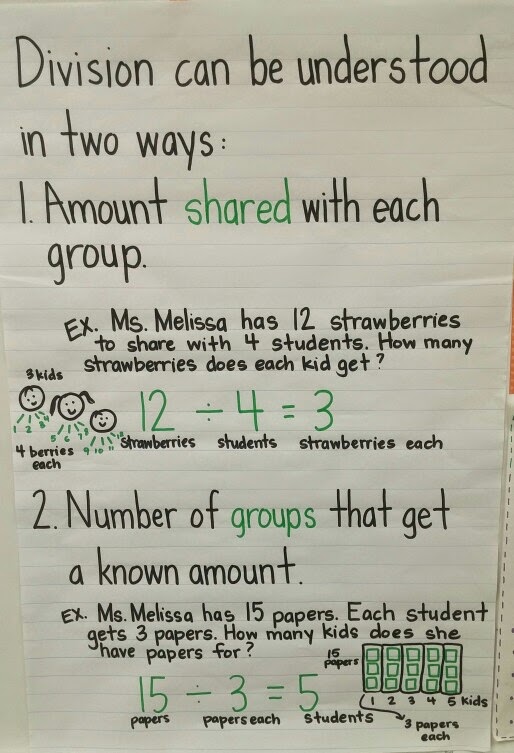 Division can be understood
in two ways:
1. Amount shared with each
group.
EX. Ms. Melissa has 12 strawberries
to share with 4 students. How many
strawberries does each kid get?
3 kids
1 2 3 4
5 6 7 8
9 10 11 12
4 berries
each
12 ÷ 4 = 3
strawberries students strawberries each
2. Number of groups that get
a known amount.
EX. Ms. Melissa has 15 papers. Each student
gets 3 papers. How many kids does she
have papers for?
15
papers
1 2 3 4 5 kids
3 papers
each
15 ÷ 3 = 5
papers papers each students